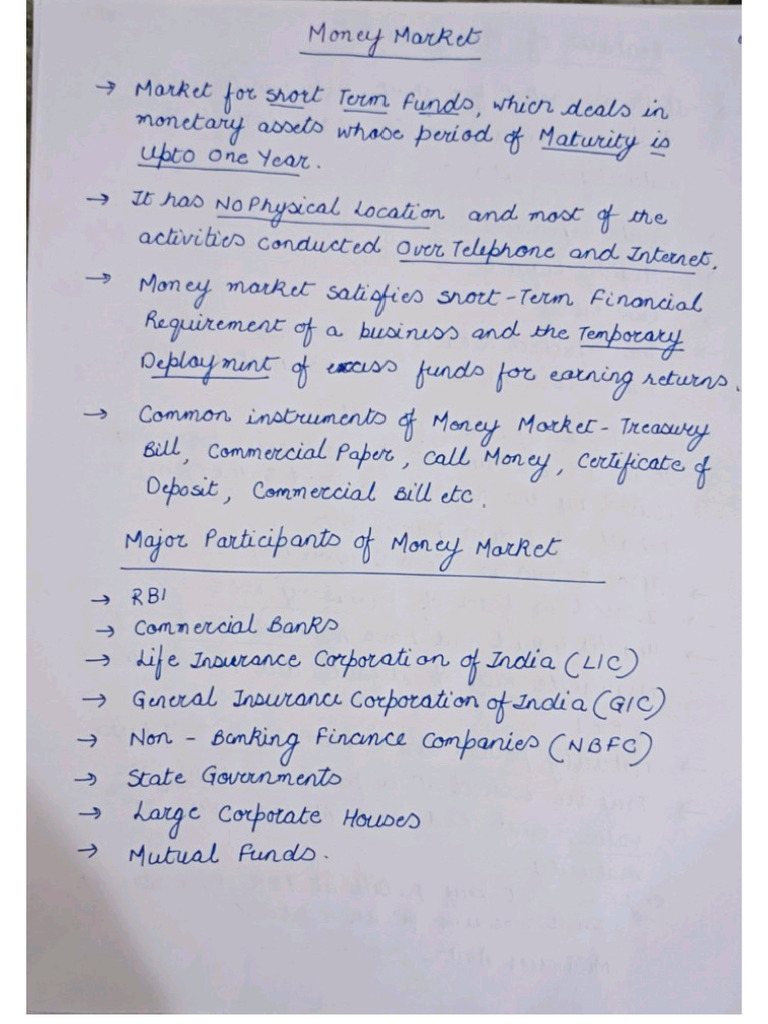 Money Market
→ Market for short Term Funds, which deals in
monetary assets whose period of Maturity is
Upto One Year.
→ It has No Physical Location and most of the
activities conducted Over Telephone and Internet.
→ Money market satisfies short-Term Financial
Requirement of a business and the Temporary
Deployment of excess funds for earning returns.
→ Common instruments of Money Market - Treasury
Bill, Commercial Paper, Call Money, Certificate of
Deposit, Commercial Bill etc.
Major Participants of Money Market
→ RBI
→ Commercial Banks
→ Life Insurance Corporation of India (LIC)
→ General Insurance Corporation of India (GIC)
→ Non - Banking Finance Companies (NBFC)
→ State Governments
→ Large Corporate Houses
→ Mutual Funds.